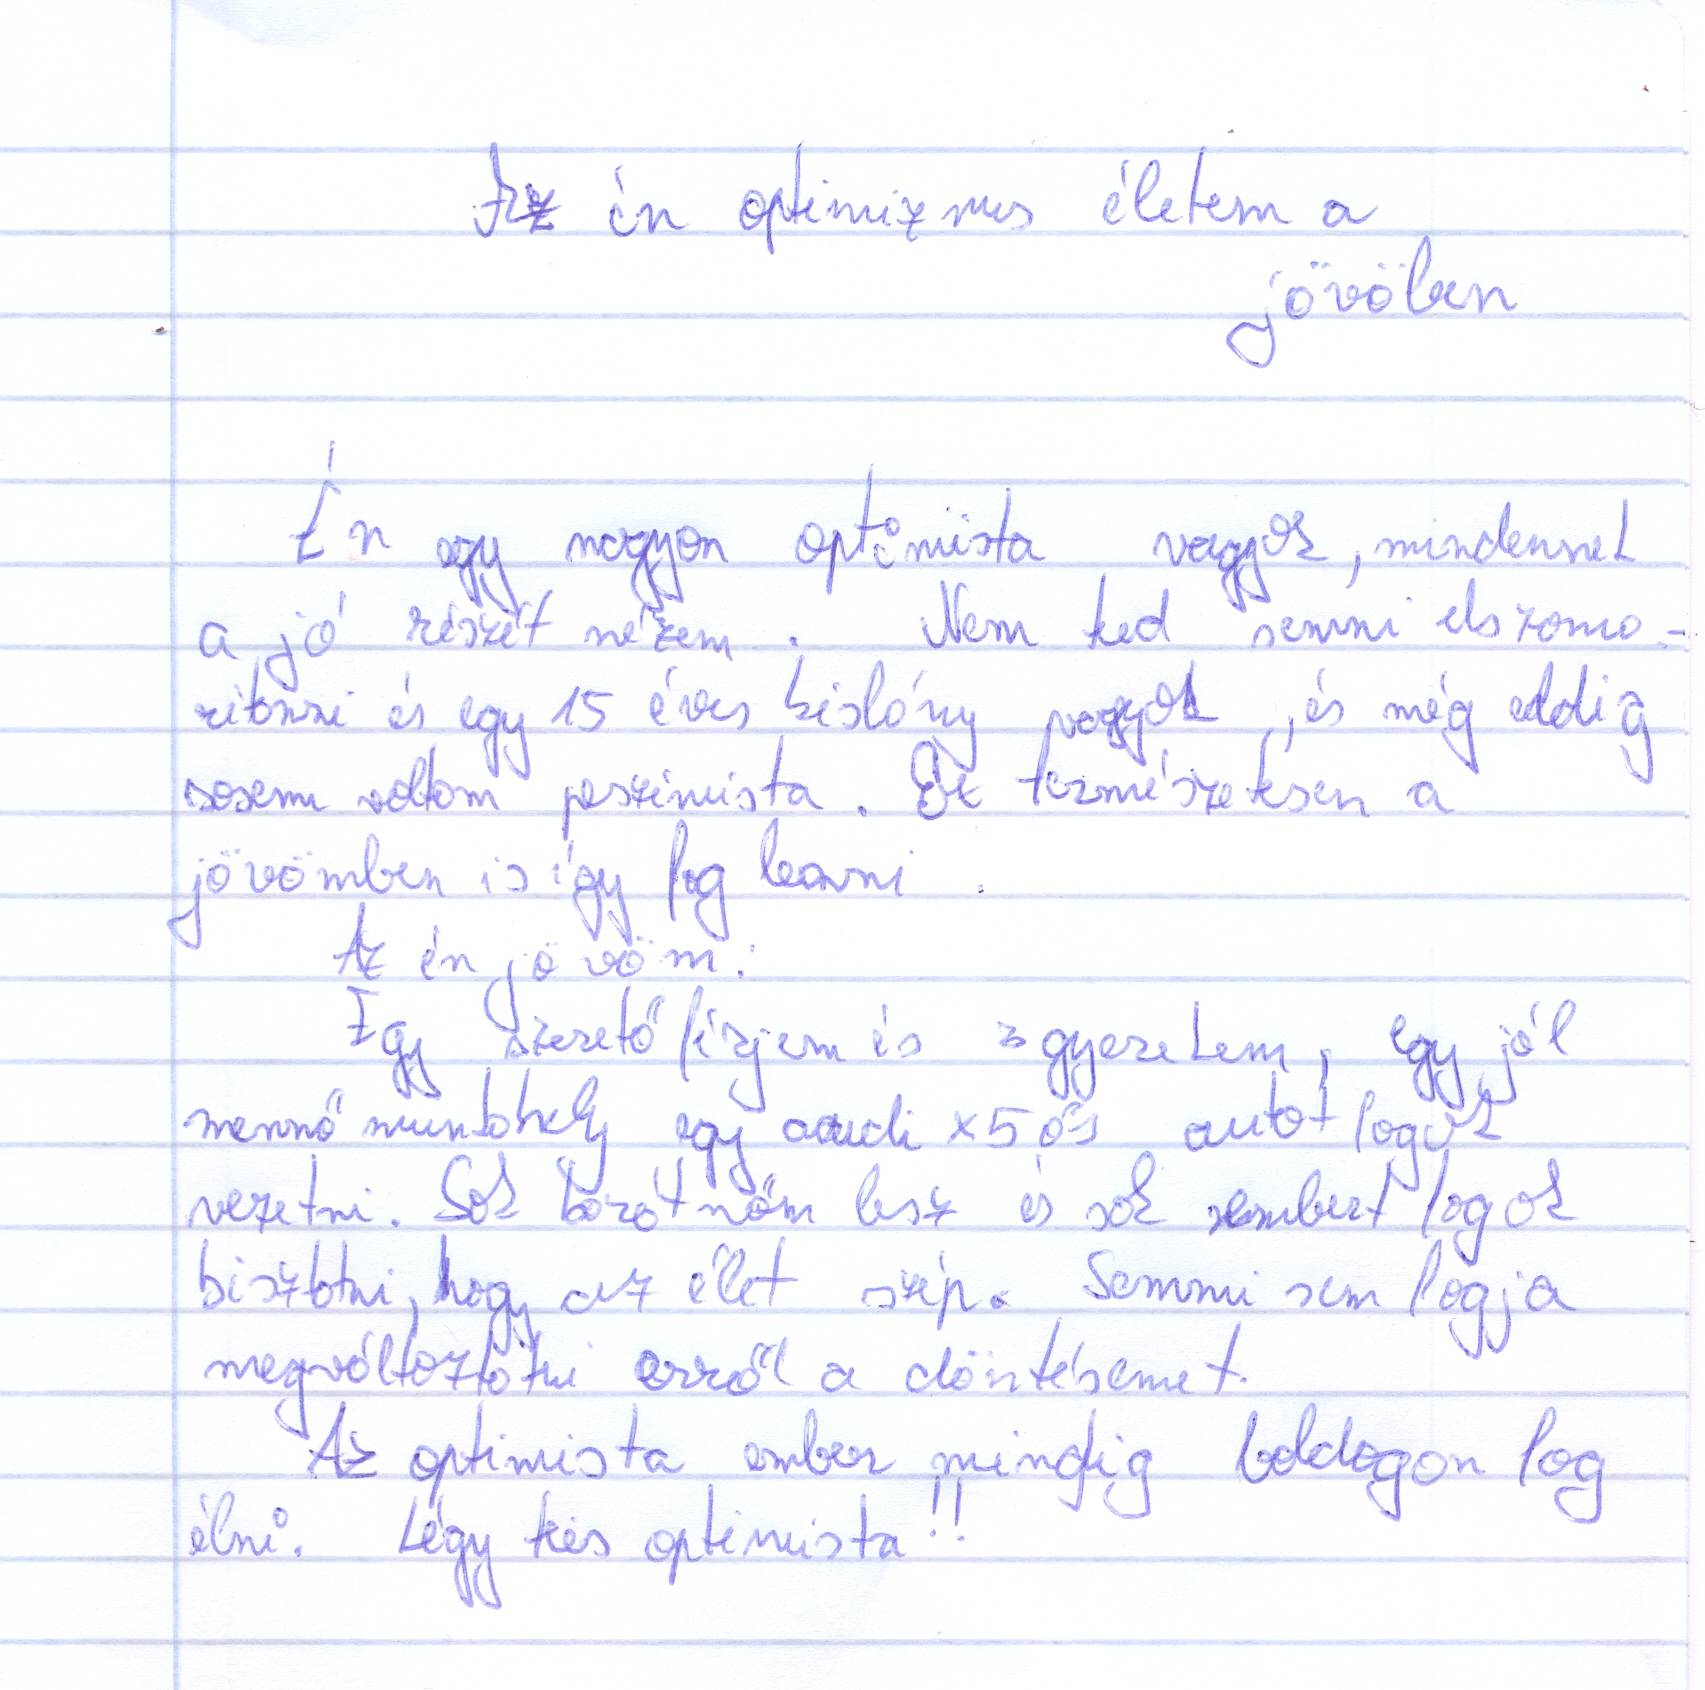 Az én optimizmus életem a
jövöben
Én egy nagyon optimista vagyok, mindennek
a jó részét nézem. Nem tud semmi elszomo-
ritani és egy 15 éves kislány vagyok, és még eddig
sosem voltam peszimista. Ez természetesen a
jövömben is így fog lenni.
Az én jövöm:
Egy szerető férjem és 3 gyerekem, egy jól
mennő munkahely egy audi x5 ös autót fogok
vezetni. Sok barátnőm lesz és sok embert fogok
bisztatni, hogy az élet szép. Semmi sem fogja
megváltoztatni erről a döntésemet.
Az optimista ember mindig boldogan fog
élni. Légy optimista!!